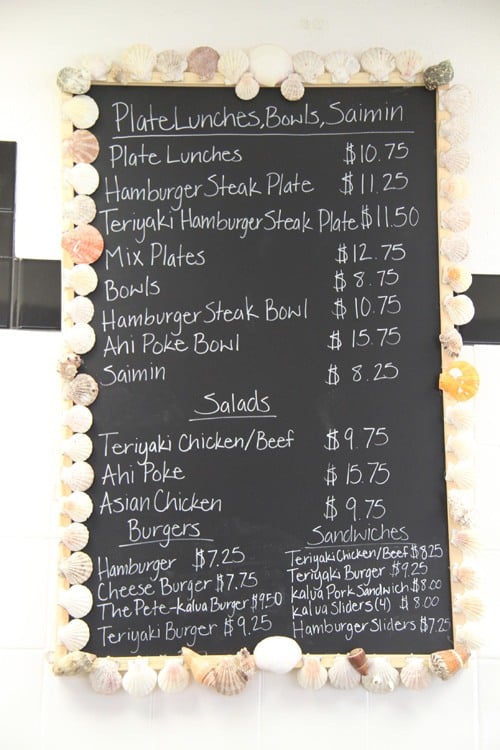 Plate Lunches, Bowls, Saimin
Plate Lunches $10.75
Hamburger Steak Plate $11.25
Teriyaki Hamburger Steak Plate $11.50
Mix Plates $12.75
Bowls $8.75
Hamburger Steak Bowl $10.75
Ahi Poke Bowl $15.75
Saimin $8.25
Salads
Teriyaki Chicken/Beef $9.75
Ahi Poke $15.75
Asian Chicken $9.75
Burgers
Hamburger $7.25
Cheese Burger $7.75
The Pete-kalua Burger $9.50
Teriyaki Burger $9.25
Sandwiches
Teriyaki Chicken/Beef $8.25
Teriyaki Burger $9.25
Kalua Pork Sandwich $8.00
kalua Sliders (4) $8.00
Hamburger Sliders $7.25